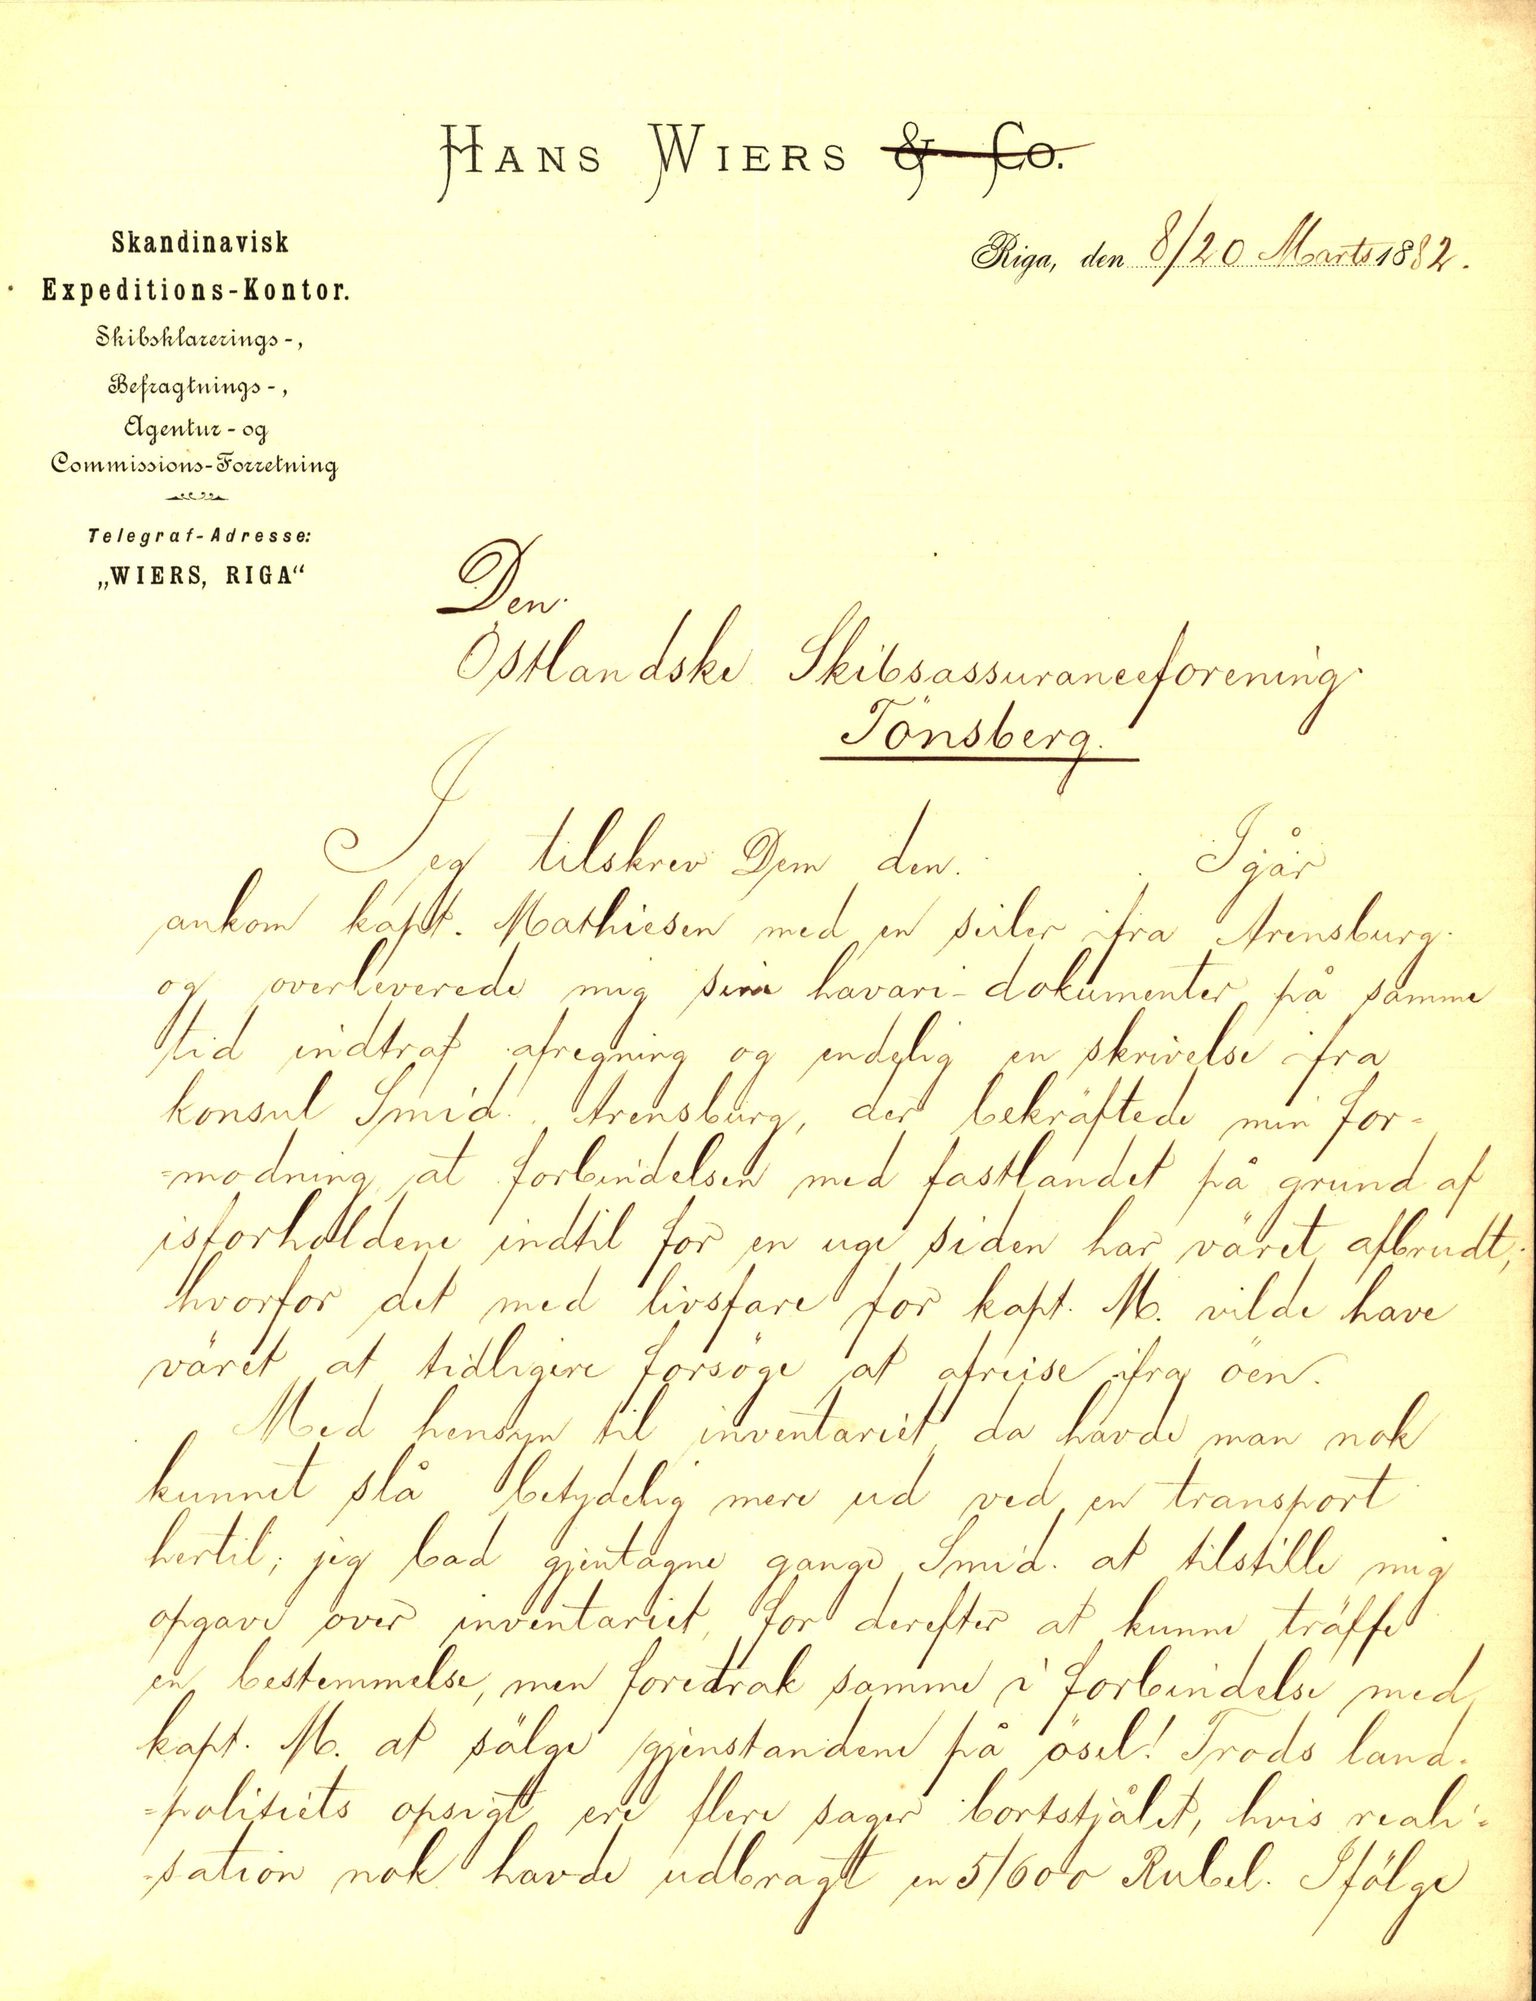 HANS WIERS & CO.
Riga, den 8/20 Marts 1882.
Skandinavisk
Expeditions-Kontor.
Skibsklarerings-,
Befragtnings-,
Agentur- og
Commissions-Forretning
Telegraf-Adresse:
„WIERS, RIGA“
Den
Östlandske Skibsassuranceforening
Tönsberg.
Jeg tilskrev Dem den. Igår
ankom kapt. Mathiesen med en seiler ifra Arensburg
og overleverede mig sine havari-dokumenter, på samme
tid indtraf afregning og endelig en skrivelse ifra
konsul Smid. Arensburg, der bekräftede min for-
=modning, at forbindelsen med fastlandet på grund af
isforholdene indtil for en uge siden har väret afbrudt,
hvorfor det med livsfare for kapt. M. vilde have
väret at tidligere forsöge at afreise ifra öen.
Med hensyn til inventariet, da havde man nok
kunnet slå betydelig mere ud ved en transport
hertil; jeg bad gjentagne gange Smid. at tilstille mig
opgave over inventariet, for derefter at kunne träffe
en bestemmelse, men foretrak samme i forbindelse med
kapt. M. at sälge gjenstandene på ösel! Trods land-
=politiets opsigt ere flere sager bortstjålet, hvis reali=
=sation nok havde udbragt en 5/600 Rubel. Ifölge